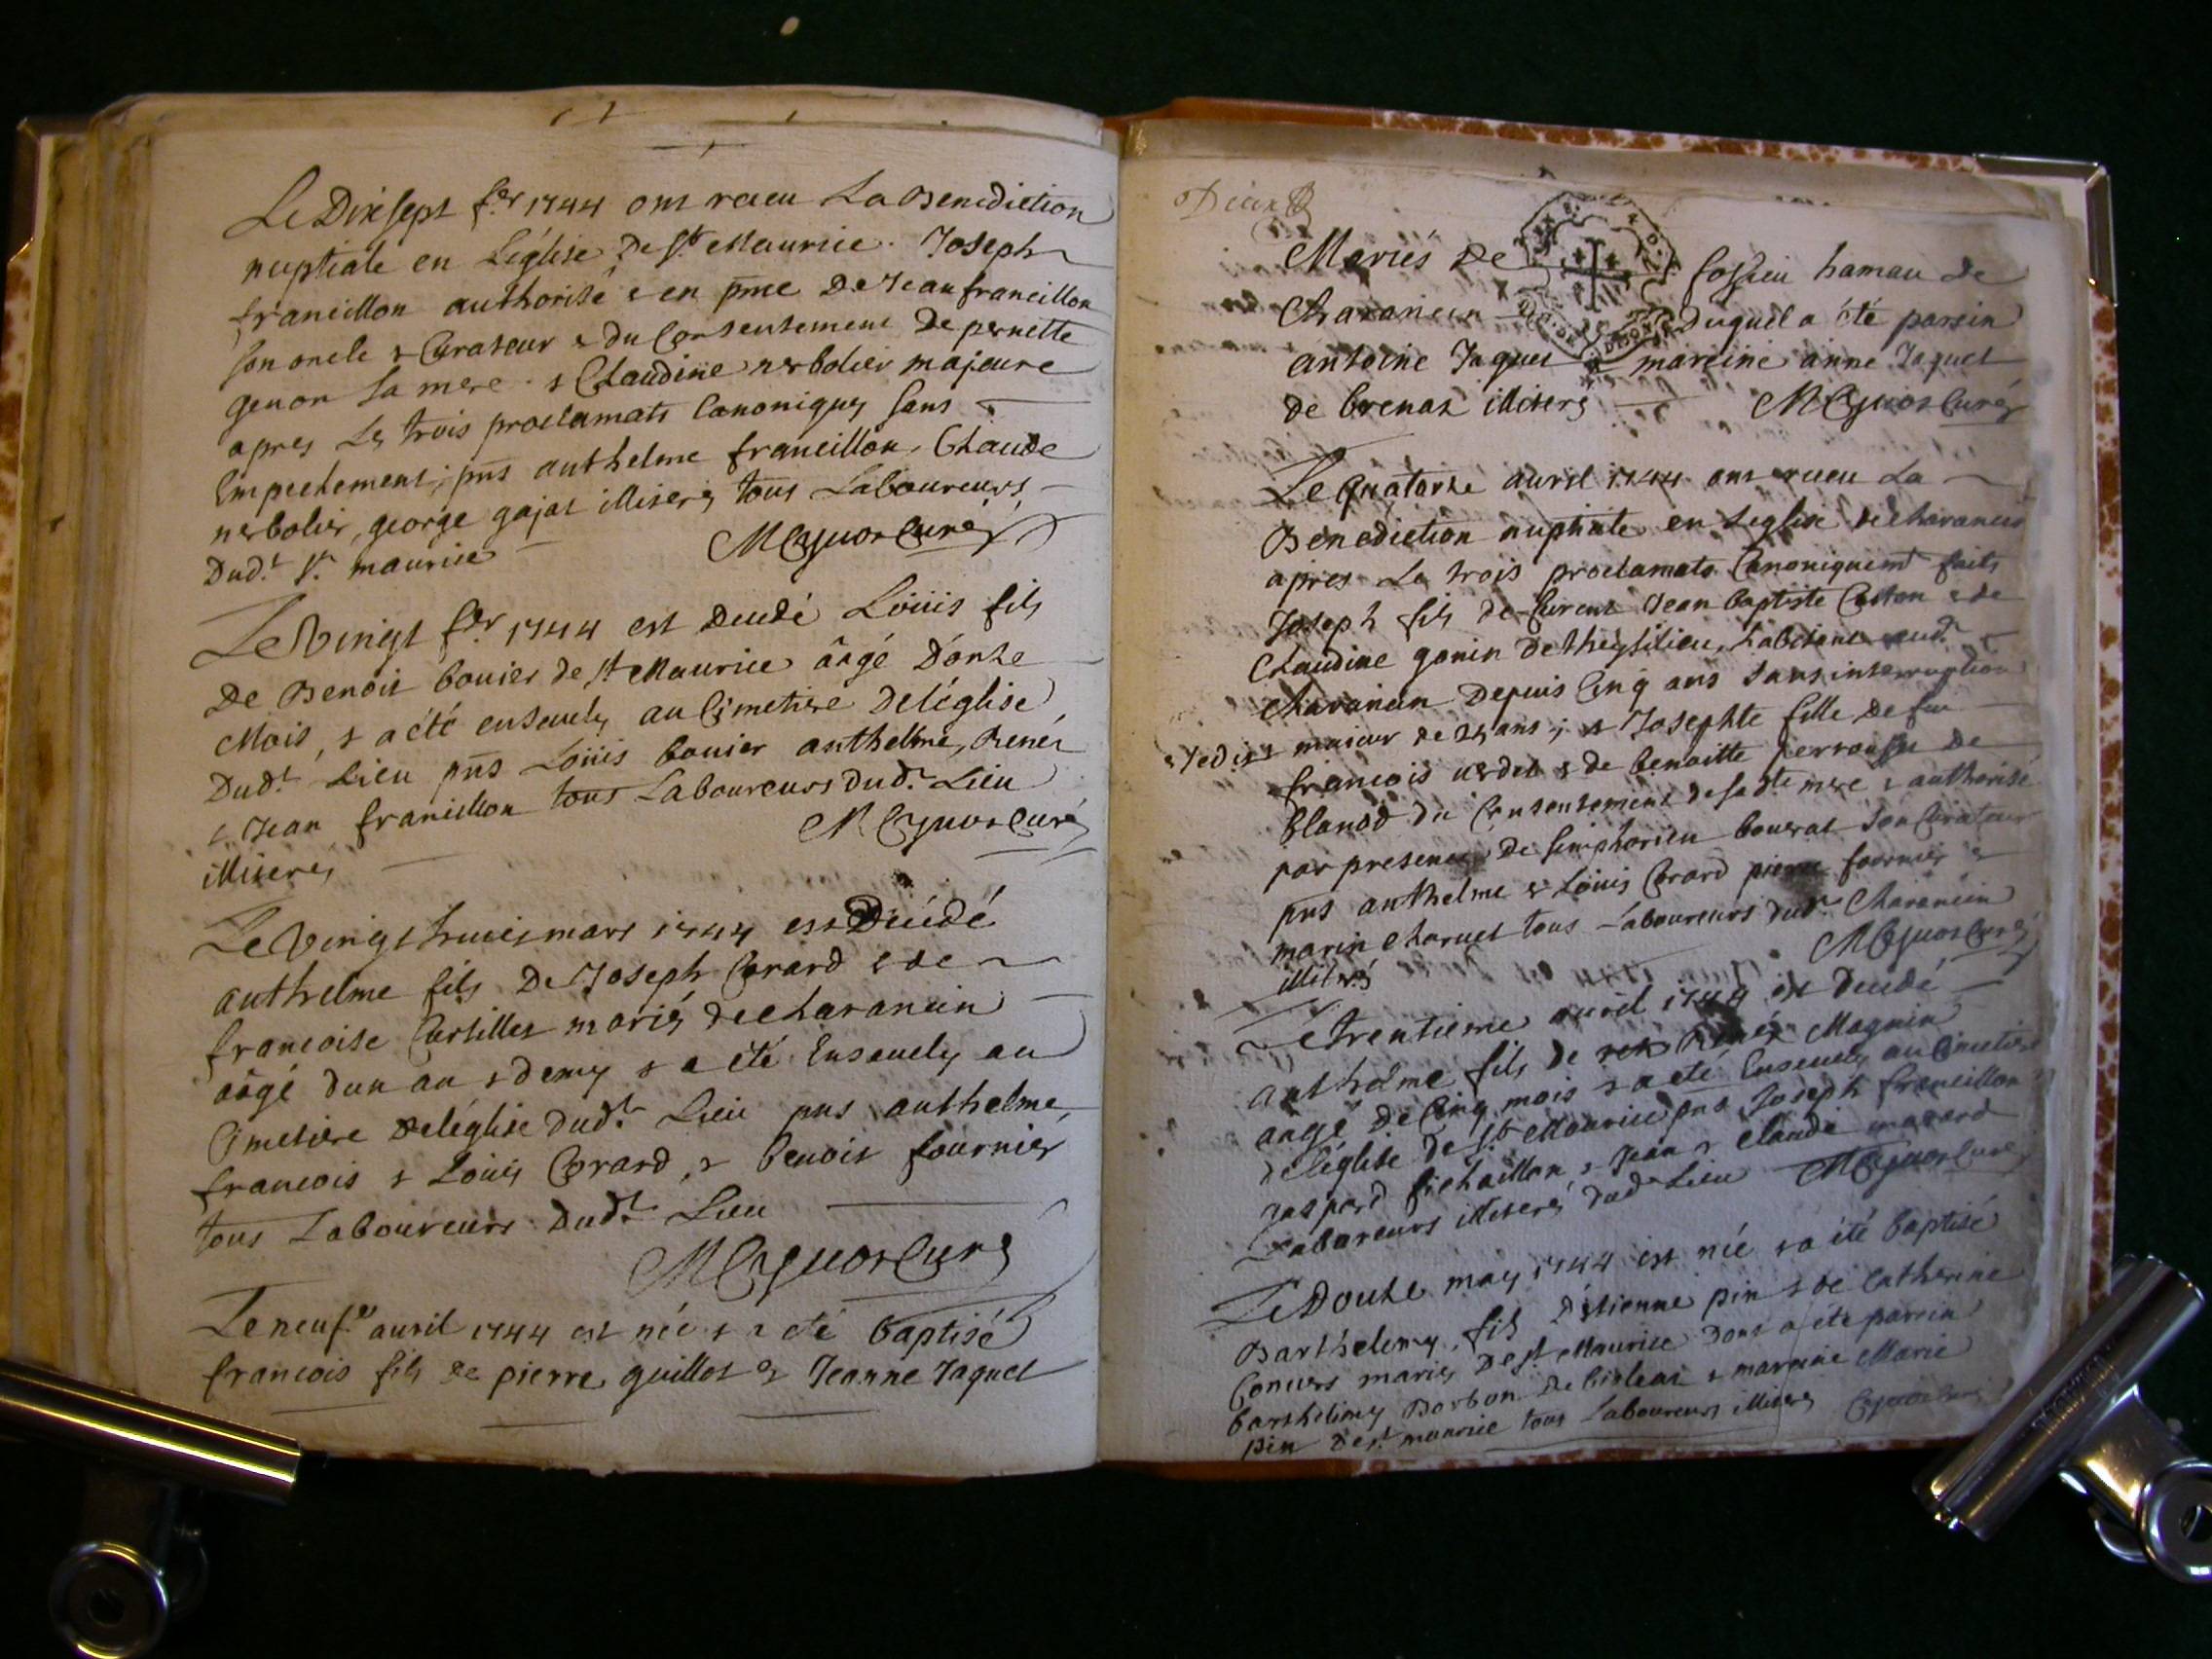 Le Dixsept fer 1744 ont receu La Benediction
nuptiale en Léglise De St Maurice Joseph
francillon authorisé & en pnce De Jean francillon
son oncle & Curateur & du Consentement De pernette
genon sa mere & Claudine nerbolier majeure
apres Les trois proclamats Canoniques sans
Empechement; pns anthelme francillon, Claude
nerbolier, george gajat illiterés tous Laboureurs
Dudt St maurice Curé
Le Vingt fer 1744 est Decedé Loüis fils
De Benoit bouier de St Maurice âagé D'onze
Mois, & a été enseuely au Cimetiere De léglise
Dudt Lieu pns Loüis bouier anthelme, René
& Jean francillon tous Laboureurs dudt Lieu
illiterés Curé
Le Vingt mars 1744 est Decedé
anthelme fils De Joseph Corard & de
francoise mariés de charancin
aâgé dun an & demy & a été Enseuely au
Cimetiere De léglise dudt Lieu pns anthelme,
francois & Loüis Corard, & benoit fournier
tous Laboureurs Dudt Lieu
Curé
Le neufe auril 1744 est né & a eté baptisé
francois fils de pierre guillot & Jeanne Jaquet
Mariés De hamau de
Charancin Duquel a été parein
antoine Jaquet & mareine anne Jaquet
de brenaz illiterés Curé
Le quatorze auril 1744 ont receu La
Benediction nuptiale en Leglise de charancin
apres Le trois proclamats Canoniquemt faits
Joseph fils de Jean baptiste & de
Claudine gonin de theysilieu, habitant audt
charancin Depuis Cinq ans sans interruption
majeur de 25 ans; & Josephte fille De feu
francois uerdet & de benoitte perrousse De
blanod du Consentement de sa dte mere & authorisé
par presence De simphorien bouerat son Curateur
pns anthelme & Loüis Corard pierre fournier &
marin charuet tous Laboureurs dudt Charancin
illiterés Curé
Le trentieme auril 1744 est Decedé
anthelme fils de René Magnin
aagé De Cinq mois & a eté Enseuely au Cimetiere
de léglise de St Maurice pns Joseph francillon
gaspard & Jean & claude
Laboureurs illiterés dudt Lieu Curé
Le Douze may 1744 est né & a été baptisé
Barthelemy fils D'étienne pin & de Catherine
Conuers mariés De St Maurice Dont a été parrin
barthelimy Borbon De & marreine Marie
pin De St maurice tous Laboureurs illiterés